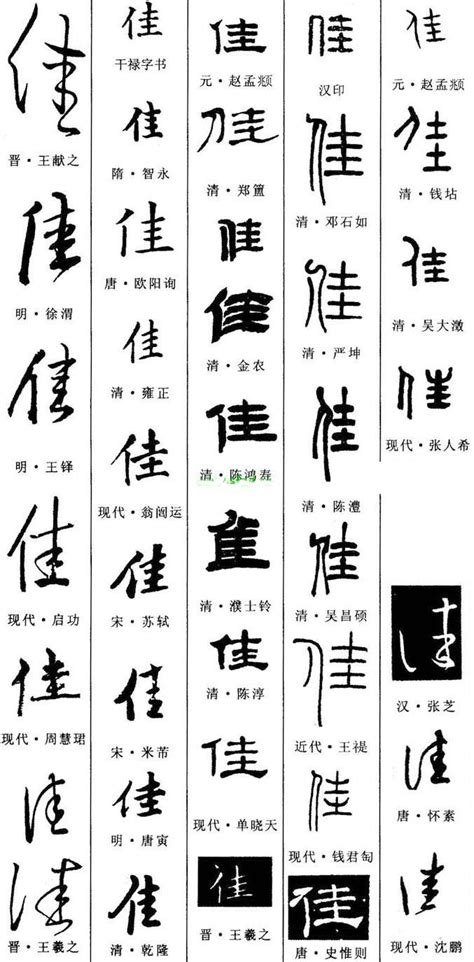 佳
晋·王献之
佳
明·徐渭
佳
明·王铎
佳
现代·启功
佳
现代·周慧珺
佳
佳
晋·王羲之
佳
干禄字书
佳
隋·智永
佳
唐·欧阳询
佳
清·雍正
佳
现代·翁闿运
佳
宋·苏轼
佳
宋·米芾
佳
明·唐寅
佳
清·乾隆
佳
元·赵孟頫
佳
清·郑簠
佳
佳
清·金农
佳
清·陈鸿寿
佳
清·濮士铃
佳
清·陈淳
佳
现代·单晓天
佳
晋·王羲之
佳
汉印
佳
清·邓石如
佳
清·严坤
佳
清·陈澧
佳
清·吴昌硕
佳
近代·王禔
佳
现代·钱君匋
佳
唐·史惟则
佳
元·赵孟頫
佳
清·钱坫
佳
清·吴大澂
佳
现代·张人希
佳
汉·张芝
佳
唐·怀素
佳
现代·沈鹏